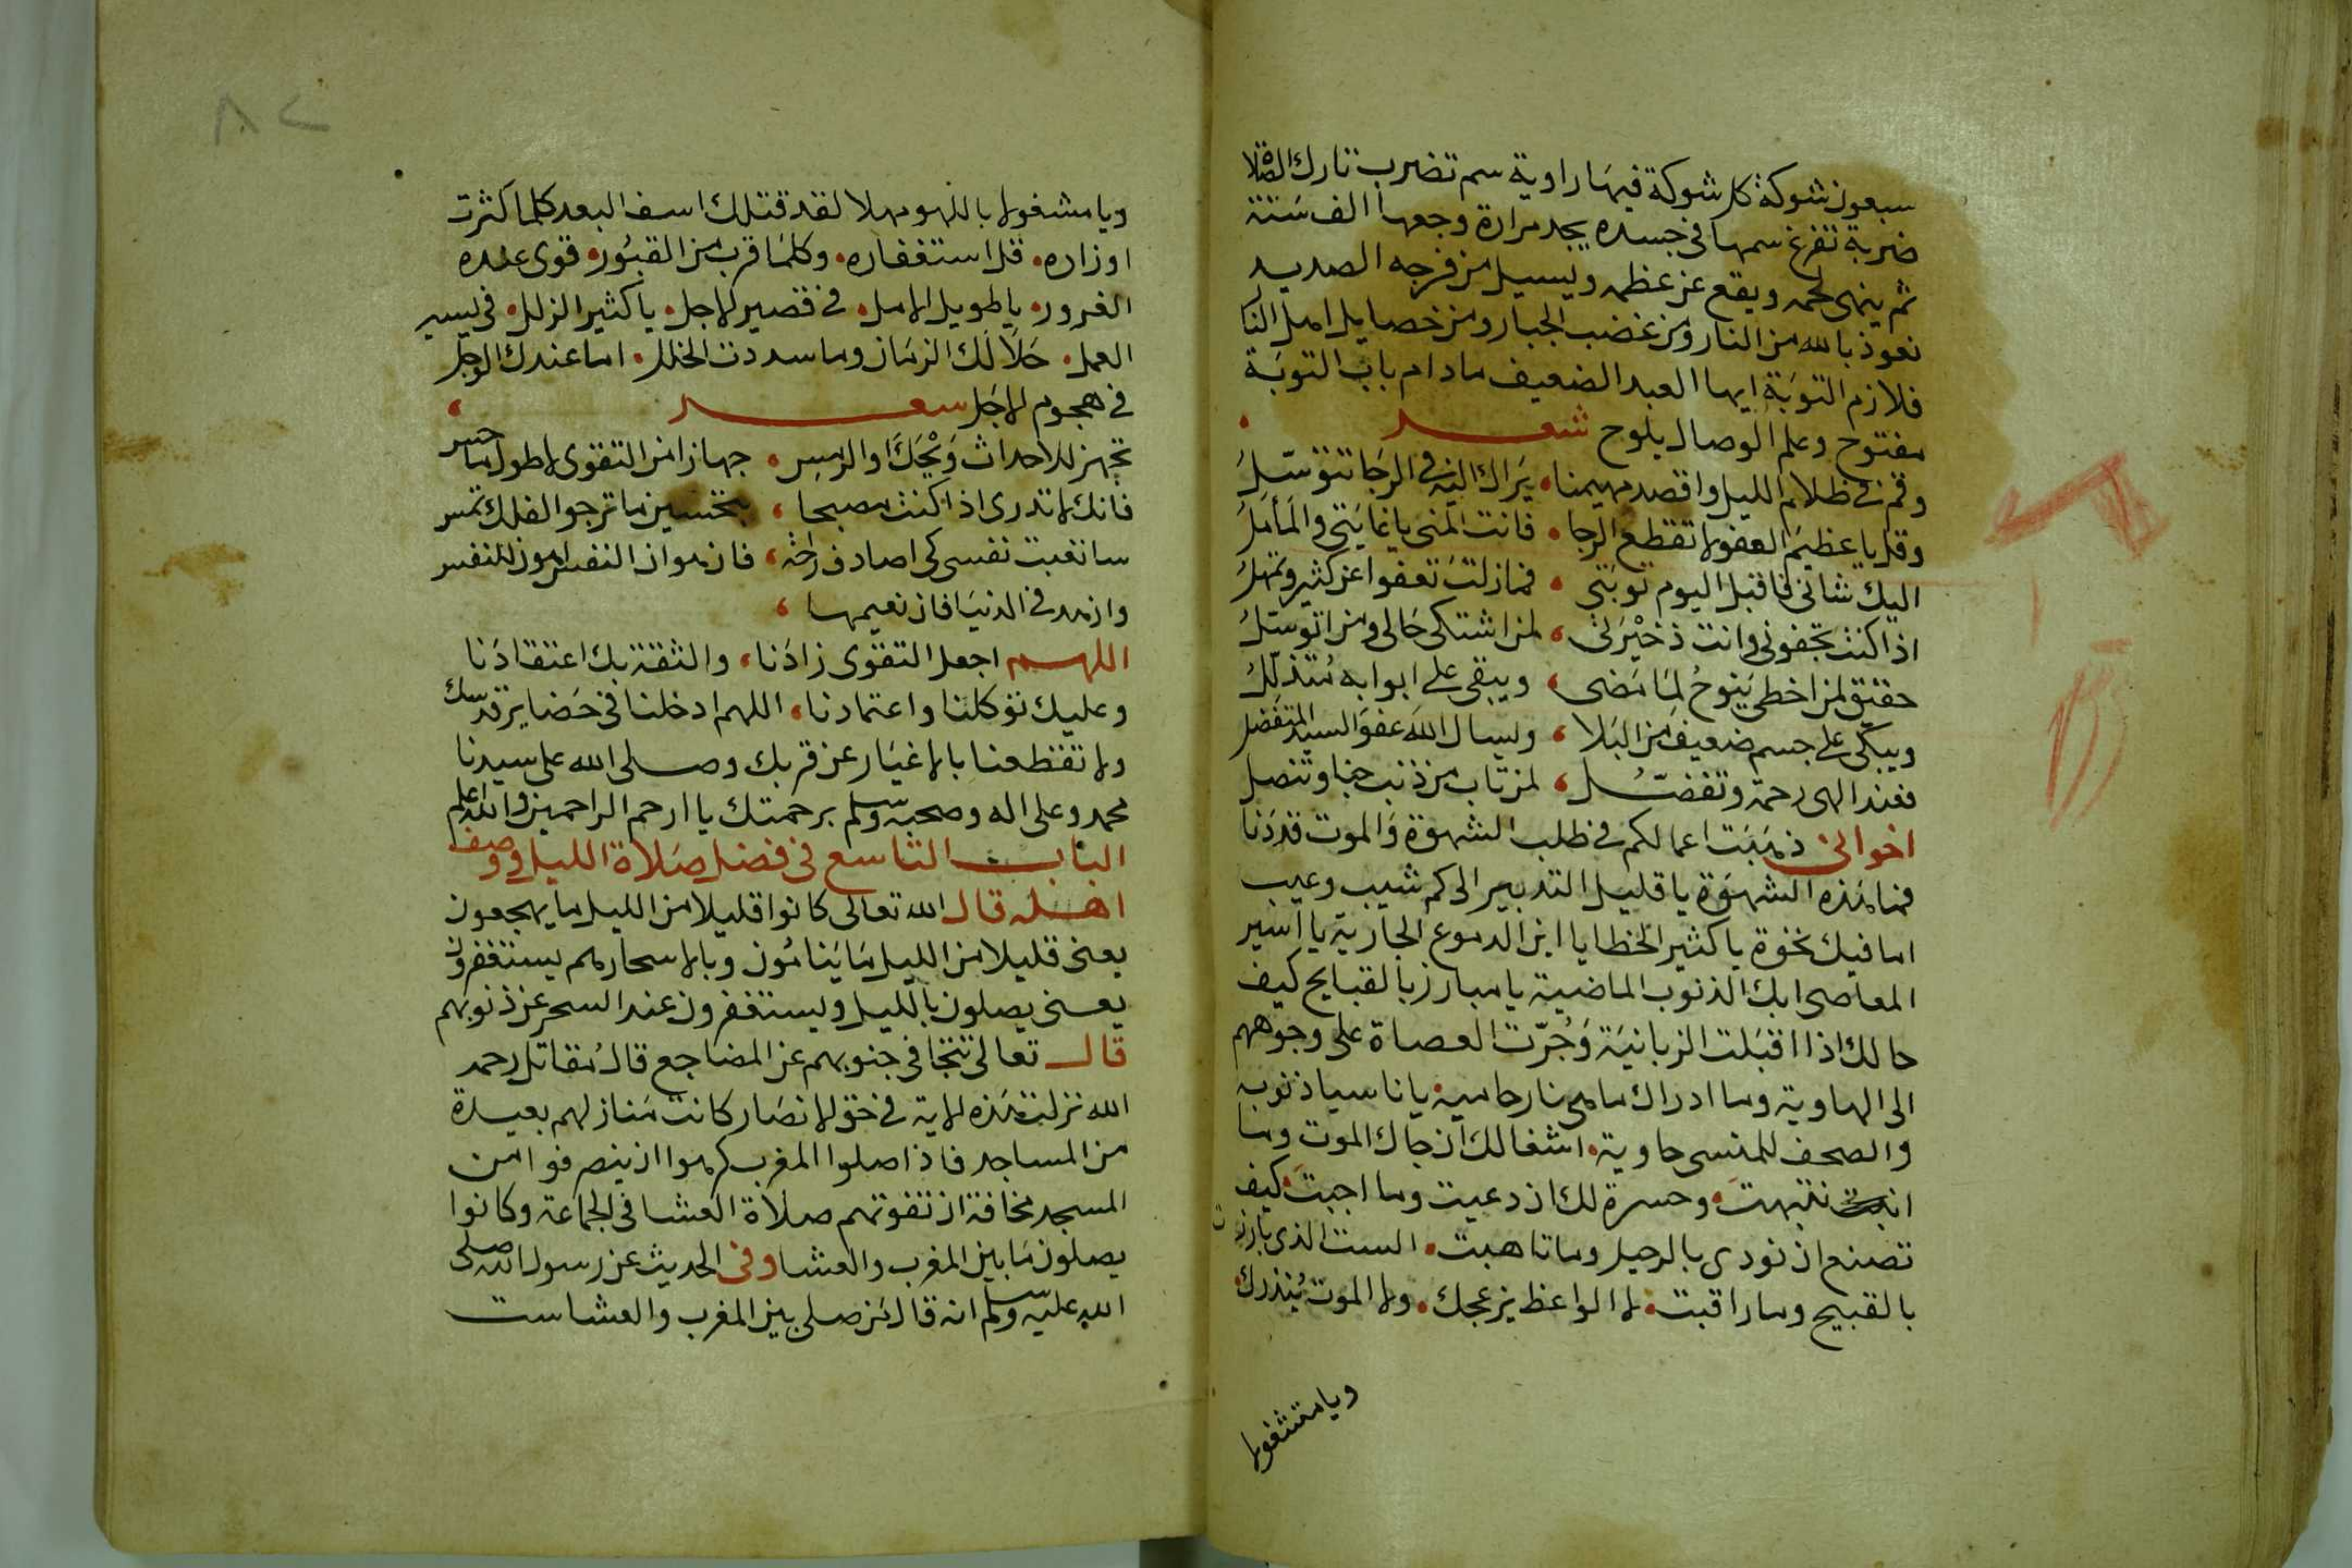 سبعون شوكة كل شوكة فيها راوية سم تضرب تارك الصلاة
ضربة تفرغ سمها في جسده يجد مرارة وجعها الف سنة
ثم ينهي لحمه ويقع عن عظمه ويسيل من فرجه الصديد
نعوذ بالله من النار ومن غضب الجبار ومن خصايل اهل النا
فلازم التوبة ايها العبد الضعيف ما دام باب التوبة
مفتوح وعلم الوصال يلوح شعر
وقم في ظلام الليل واقصد مهيمنا يراك اليه في الرجا تتوسل
وقل يا عظيم العفو لا تقطع الرجا فانت المنى يا غايتي والمامل
اليك شاني فاقبل اليوم توبتي فما زلت تعفوا عن كثير وتمهل
اذا كنت تجفوني وانت ذخيرتي لمن اشتكي حالي ومن اتوسل
حقيق لمن اخطى ينوح لما مضى ويبقى على ابوابه متذلل
ويبكي على جسم ضعيف من البلا ويسال الله عفو السيد المتفضل
فعند الهي رحمة وتفضل لمن تاب من ذنب جنا وتنصل
اخواني ذهبت اعمالكم في طلب الشهوة والموت قد دنا
فما هذه الشهوة يا قليل التدبير الى كم شيب وعيب
اما فيك نخوة يا كثير الخطايا اين الدموع الجارية يا اسير
المعاصي ابك الذنوب الماضية يا مبارز بالقبايح كيف
حالك اذا اقبلت الزبانية وجرت العصاة على وجوههم
الى الهاوية وما ادراك ما هي نار حامية يا ناسيا ذنوبه
والصحف للمنسي حاوية اشغالك ان جاك الموت وما
انتبهت وحسرة لك ان دعيت وما اجبت كيف
تصنع ان نودي بالرحيل وما تاهبت الست الذي بارزت
بالقبيح وما راقبت لا الواعظ يزعجك ولا الموت ينذرك
ويا مشغولا
٨٢
ويا مشغولا باللهو مهلا لقد قتلك اسف البعد كلما كثرت
اوزاره قل استغفاره وكلما قرب من القبور قوى عنده
الغرور يا طويل الامل في قصير الاجل يا كثير الزلل في يسير
العمل خلا لك الزمان وما سددت الخلل اما عندك الوجل
في هجوم الاجل شعر
تجهز للاحداث ويحك والرمس جهازا من التقوى لاطول ما حبس
فانك لا تدري اذا كنت مصبحا بتحسين ما ترجوا لعلك تمس
ساتعبت نفسي كي اصادف راحة فان هوان النفس اهون للنفس
وازهد في الدنيا فان نعيمها
اللهم اجعل التقوى زادنا والثقة بك اعتقادنا
وعليك توكلنا واعتمادنا اللهم ادخلنا في حضاير قدسك
ولا تقطعنا بالاغيار عن قربك وصلى الله على سيدنا
محمد وعلى اله وصحبه وسلم برحمتك يا ارحم الراحمين والله اعلم
الباب التاسع في فضل صلاة الليل ووصف
اهله قال الله تعالى كانوا قليلا من الليل ما يهجعون
يعني قليلا من الليل ما ينامون وبالاسحار هم يستغفرون
يعني يصلون بالليل ويستغفرون عند السحر عن ذنوبهم
قال تعالى تتجافى جنوبهم عن المضاجع قال مقاتل رحمه
الله نزلت هذه الاية في حق الانصار كانت منازلهم بعيدة
من المساجد فاذا صلوا المغرب كرهوا ان ينصرفوا من
المسجد مخافة ان تفوتهم صلاة العشا في الجماعة وكانوا
يصلون ما بين المغرب والعشا وفي الحديث عن رسول الله صلى
الله عليه وسلم انه قال من صلى بين المغرب والعشا ست